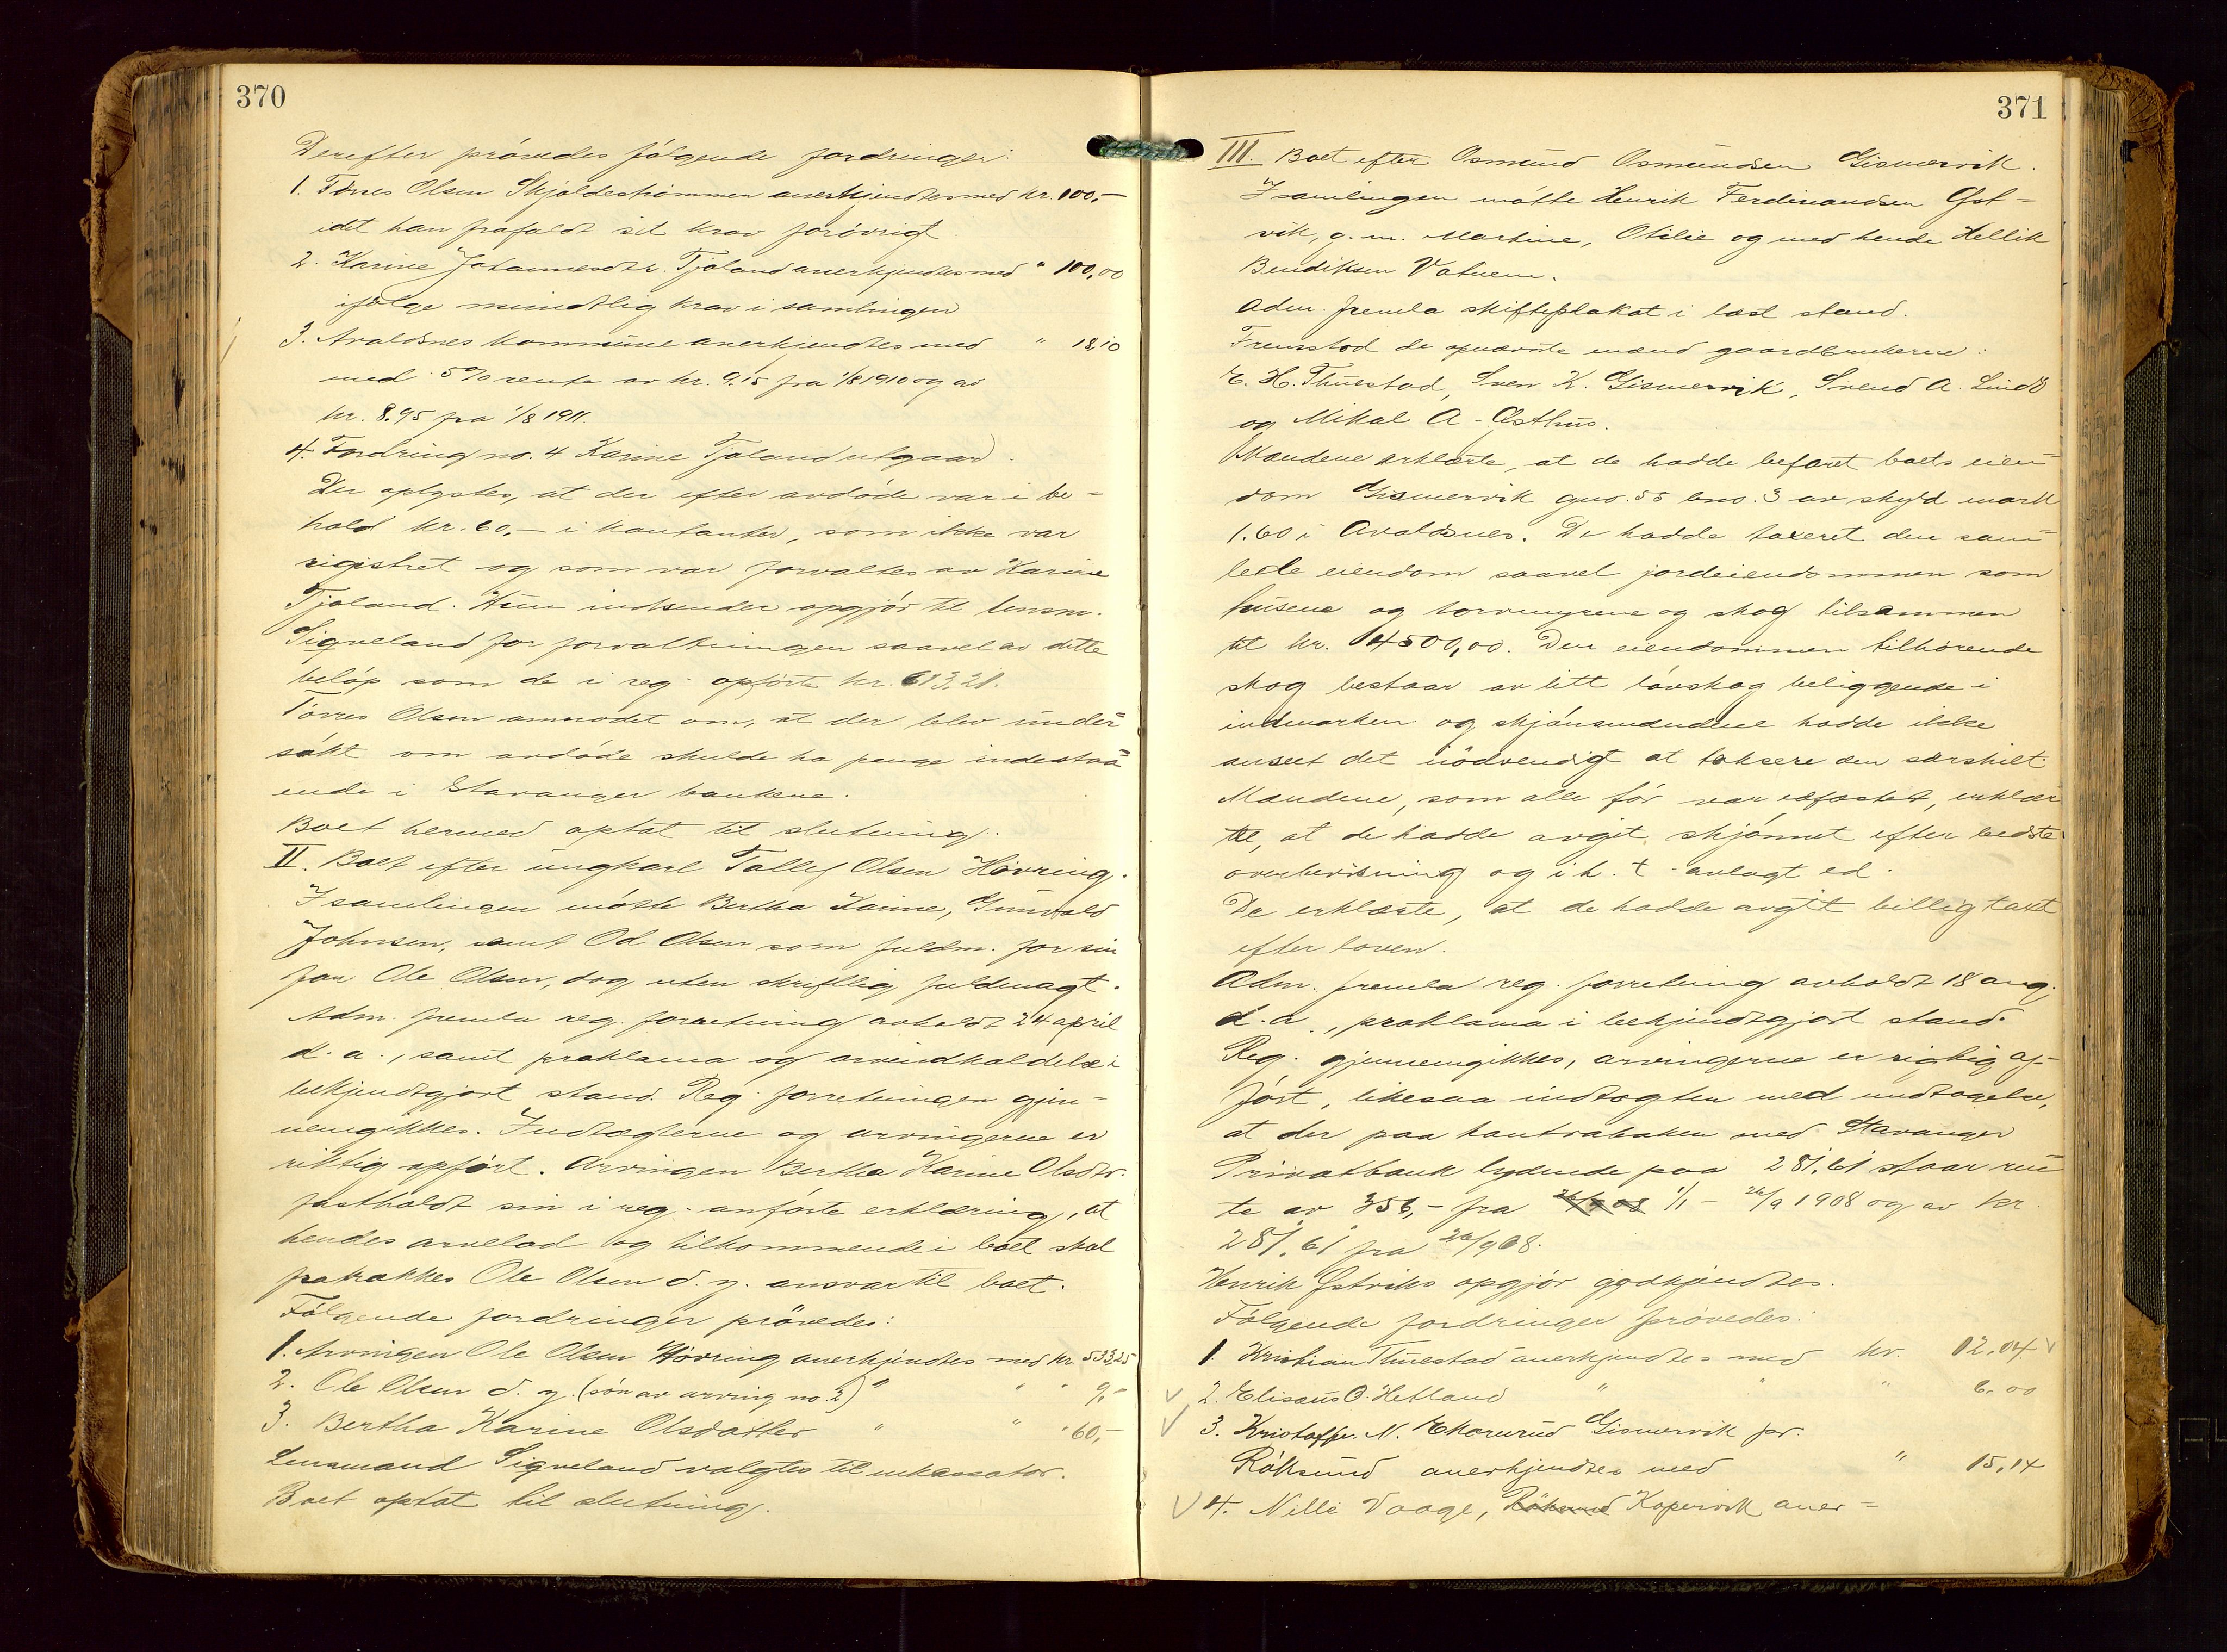 370
Derefter prövedes fölgende fordringer:
1. Törres Olsen Skjoldeströmmen anerkjendtes med kr. 100,-
idet han frafaldt sit krav forövrigt.
2. Karine Johannesdtr. Tjoland anerkjendtes med " 100,00
ifölge mundtlig krav i samlingen
3. Avaldsnes kommune anerkjendtes med " 18,10
med 5% rente av kr. 9.15 fra 1/8 1910 og av
kr. 8.95 fra 1/8 1911.
4. Fordring no. 4 Karine Tjoland utgaar.
Der oplystes, at der efter avdöde var i be=
hold kr. 60,- i kontanter, som ikke var
rigistret og som var forvaltes av Karine
Tjoland. Hun indsender opgjör til lensm.
Sigveland for forvaltningen saavel av dette
belöp som de i reg. opförte kr. 613,21.
Törres Olsen anmodet om, at der blev under=
sökt om avdöde skulde ha penge indestaa=
ende i Stavanger bankene.
Boet hermed optat til slutning.
II. Boet efter ungkarl Tollef Olsen Hövring.
I samlingen mötte Bertha Karine, Gunvald
Johnsen, samt Od Olsen som fuldm. for sin
far Ole Olsen, dog uten skriftlig fuldmagt.
Adm. fremla reg. forretning avholdt 24 april
d. a., samt proklama og arveindkaldelse i
bekjendtgjort stand. Reg. forretningen gjen=
nemgikkes. Indtægterne og arvingerne er
riktig opfört. Arvingen Bertha Karine Olsdtr.
fastholdt sin i reg. anförte erklæring, at
hendes arvelod og tilkommende i boet skal
fratrækkes Ole Olsen d. y. ansvar til boet.
Fölgende fordringer prövedes:
1. Arvingen Ole Olsen Hövring anerkjendtes med kr. 533,25
2. Ole Olsen d. y. (sön av arving no. 2) " " " 9,-
3. Bertha Karine Olsdatter " " " 60,-
Lensmand Sigveland valgtes til inkassator.
Boet optat til slutning.
371
III. Boet efter Osmund Osmundsen Gismervik.
I samlingen mötte Henrik Ferdinandsen Öst=
vik, g. m. Martine, Otilie og med hende Hellik
Bendiksen Vatnem.
Adm. fremla skifteplakat i læst stand.
Fremstod de opnævnte mænd gaardbrukerne:
E. H. Thuestad, Sven K. Gismervik, Svend A. Lindö
og Mikal A. Østhus.
Mændene erklærte, at de hadde befaret boets eien=
dom Gismervik gno. 55 bno. 3 av skyld mark
1.60 i Avaldsnes. De hadde taxeret den sam=
lede eiendom saavel jordeiendommen som
husene og torvmyrene og skog tilsammen
til kr. 14500,00. Den eiendommen tilhörende
skog bestaar av litt lövskog beliggende i
indmarken og skjönsmændene hadde ikke
anseet det nödvendigt at taksere den særskilt.
Mændene, som alle för var edfæstet, erklær
te, at de hadde avgit skjönnet efter bedste
overbevisning og i h. t. avlagt ed.
De erklærte, at de hadde avgit billig taxt
efter loven.
Adm. fremla reg. forretning avholdt 18 aug.
d. a., proklama i bekjendtgjort stand.
Reg. gjennemgikkes, arvingerne er rigtig op-
fört, likesaa indtægten med undtagelse,
at der paa kontrabøken med Stavanger
Privatbank lydende paa 281,61 staar ren
te av 356,- fra 1/1 - 26/9 1908 og av kr.
281,61 fra 26/9 08.
Henrik Östviks opgjör godkjendtes.
Fölgende fordringer prövedes:
1. Kristian Thuestad anerkjendtes med kr. 12.04
2. Elisæus O. Hetland " " " 6.00
3. Kristoffer N. Gismervik pr.
Röksund anerkjendtes med " 15,14
4. Nelli Vaage, Kopervik aner=